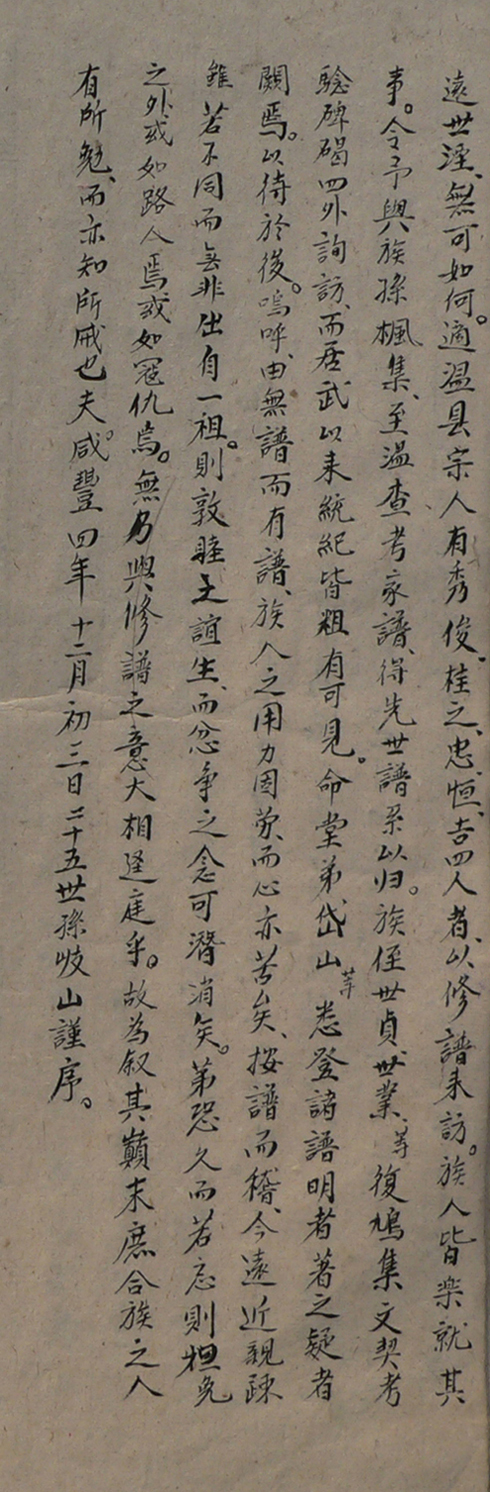 遠世湮、無可如何。適温县宗人有秀俊、桂之、忠、恒、吉四人者、以修譜来訪。族人皆楽就其
事。令予與族孫楓集、至温查考家譜、得先世譜系以归。族侄世貞、世業、等復鳩集文契考
驗碑碣四外詢訪、而居武以来統紀皆粗有可見。命堂弟、岱山等悉登諸譜明者著之疑者
闕焉。以待於後。嗚呼、由無譜而有譜、族人之用力固労、而心亦苦矣、按譜而稽、今遠近親疎
雖若不同而無非出自一祖。則敦睦之誼生、而忿争之念可潜消矣。第恐久而若忘則袒免
之外或如路人焉或如冦仇焉。無乃與修譜之意大相逕庭乎。故為叙其巔末庶合族之人
有所勉、而亦知所戒也夫。咸豐四年十二月初三日二十五世孫岐山謹序。